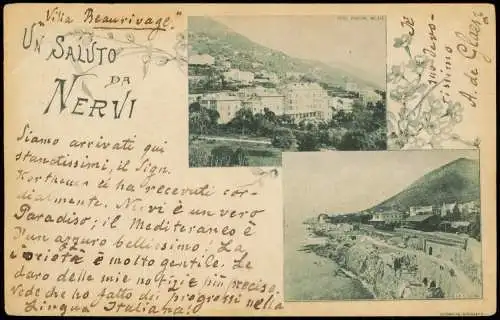 "Villa Beaurivage"
UN SALUTO
DA
NERVI
Siamo arrivati qui
stanctissimi, il Sign.
ci ha recevuti cor-
dialmente. Nervi è un vero
Paradiso; il Mediteraneo è
d'un azzuro bellissimo! La
società è molto gentile. Le
daro delle mie notizie più precise.
Vede che ho fatto dei progressi nella
Lingua Italiana!
Il
suo devo-
tissimo
A. de